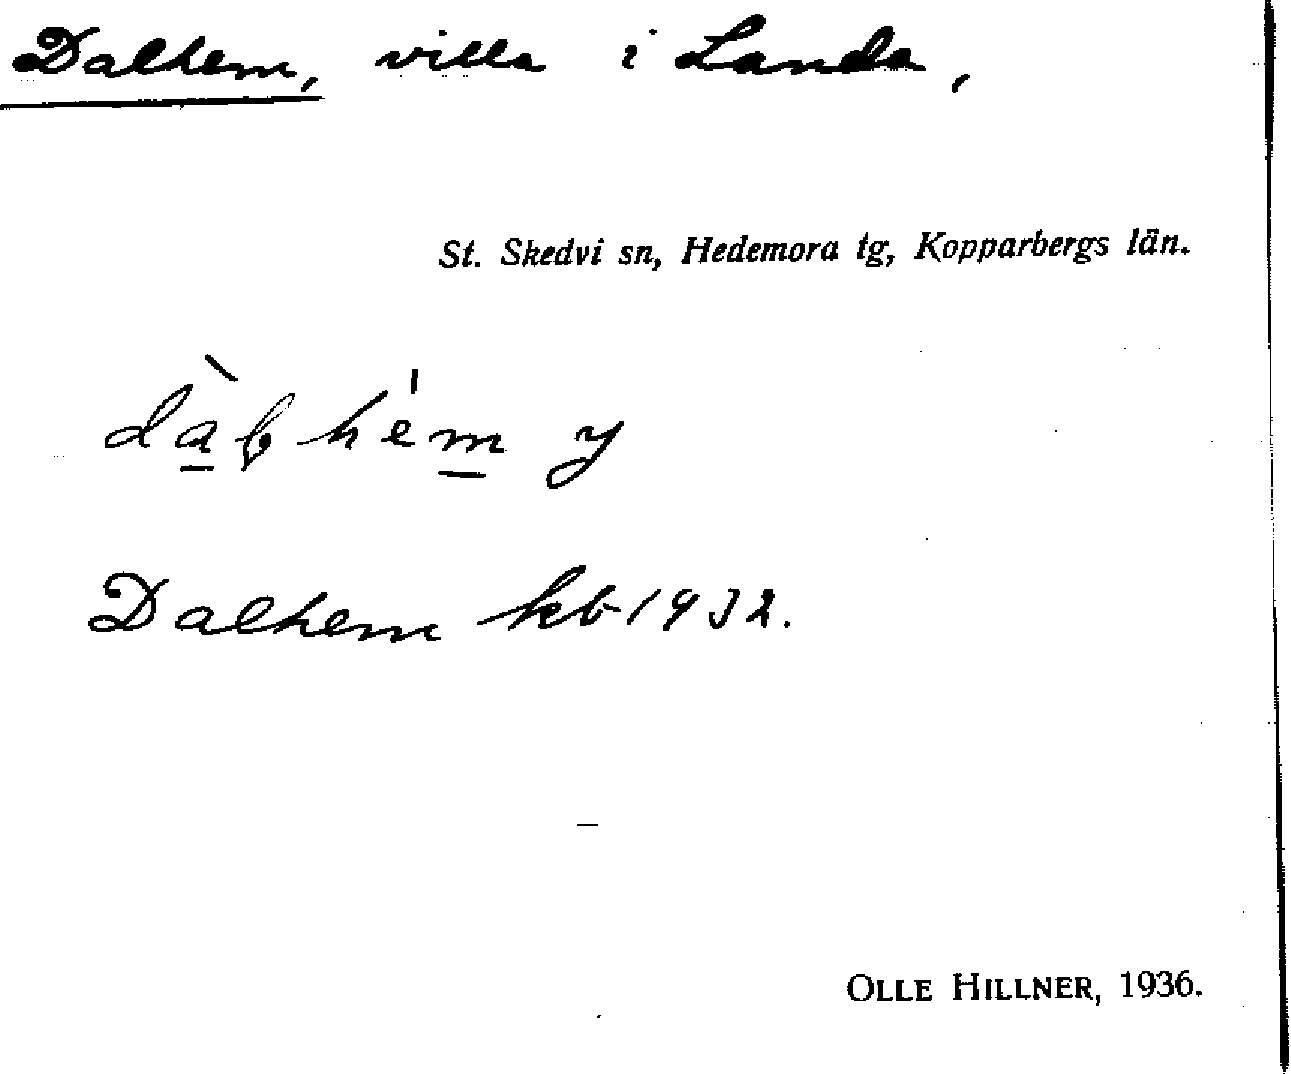 Dalhem, villa i Landa,
St. Skedvi sn, Hedemora tg, Kopparbergs län.
Dalhem kb 1932.
OLLE HILLNER, 1936.